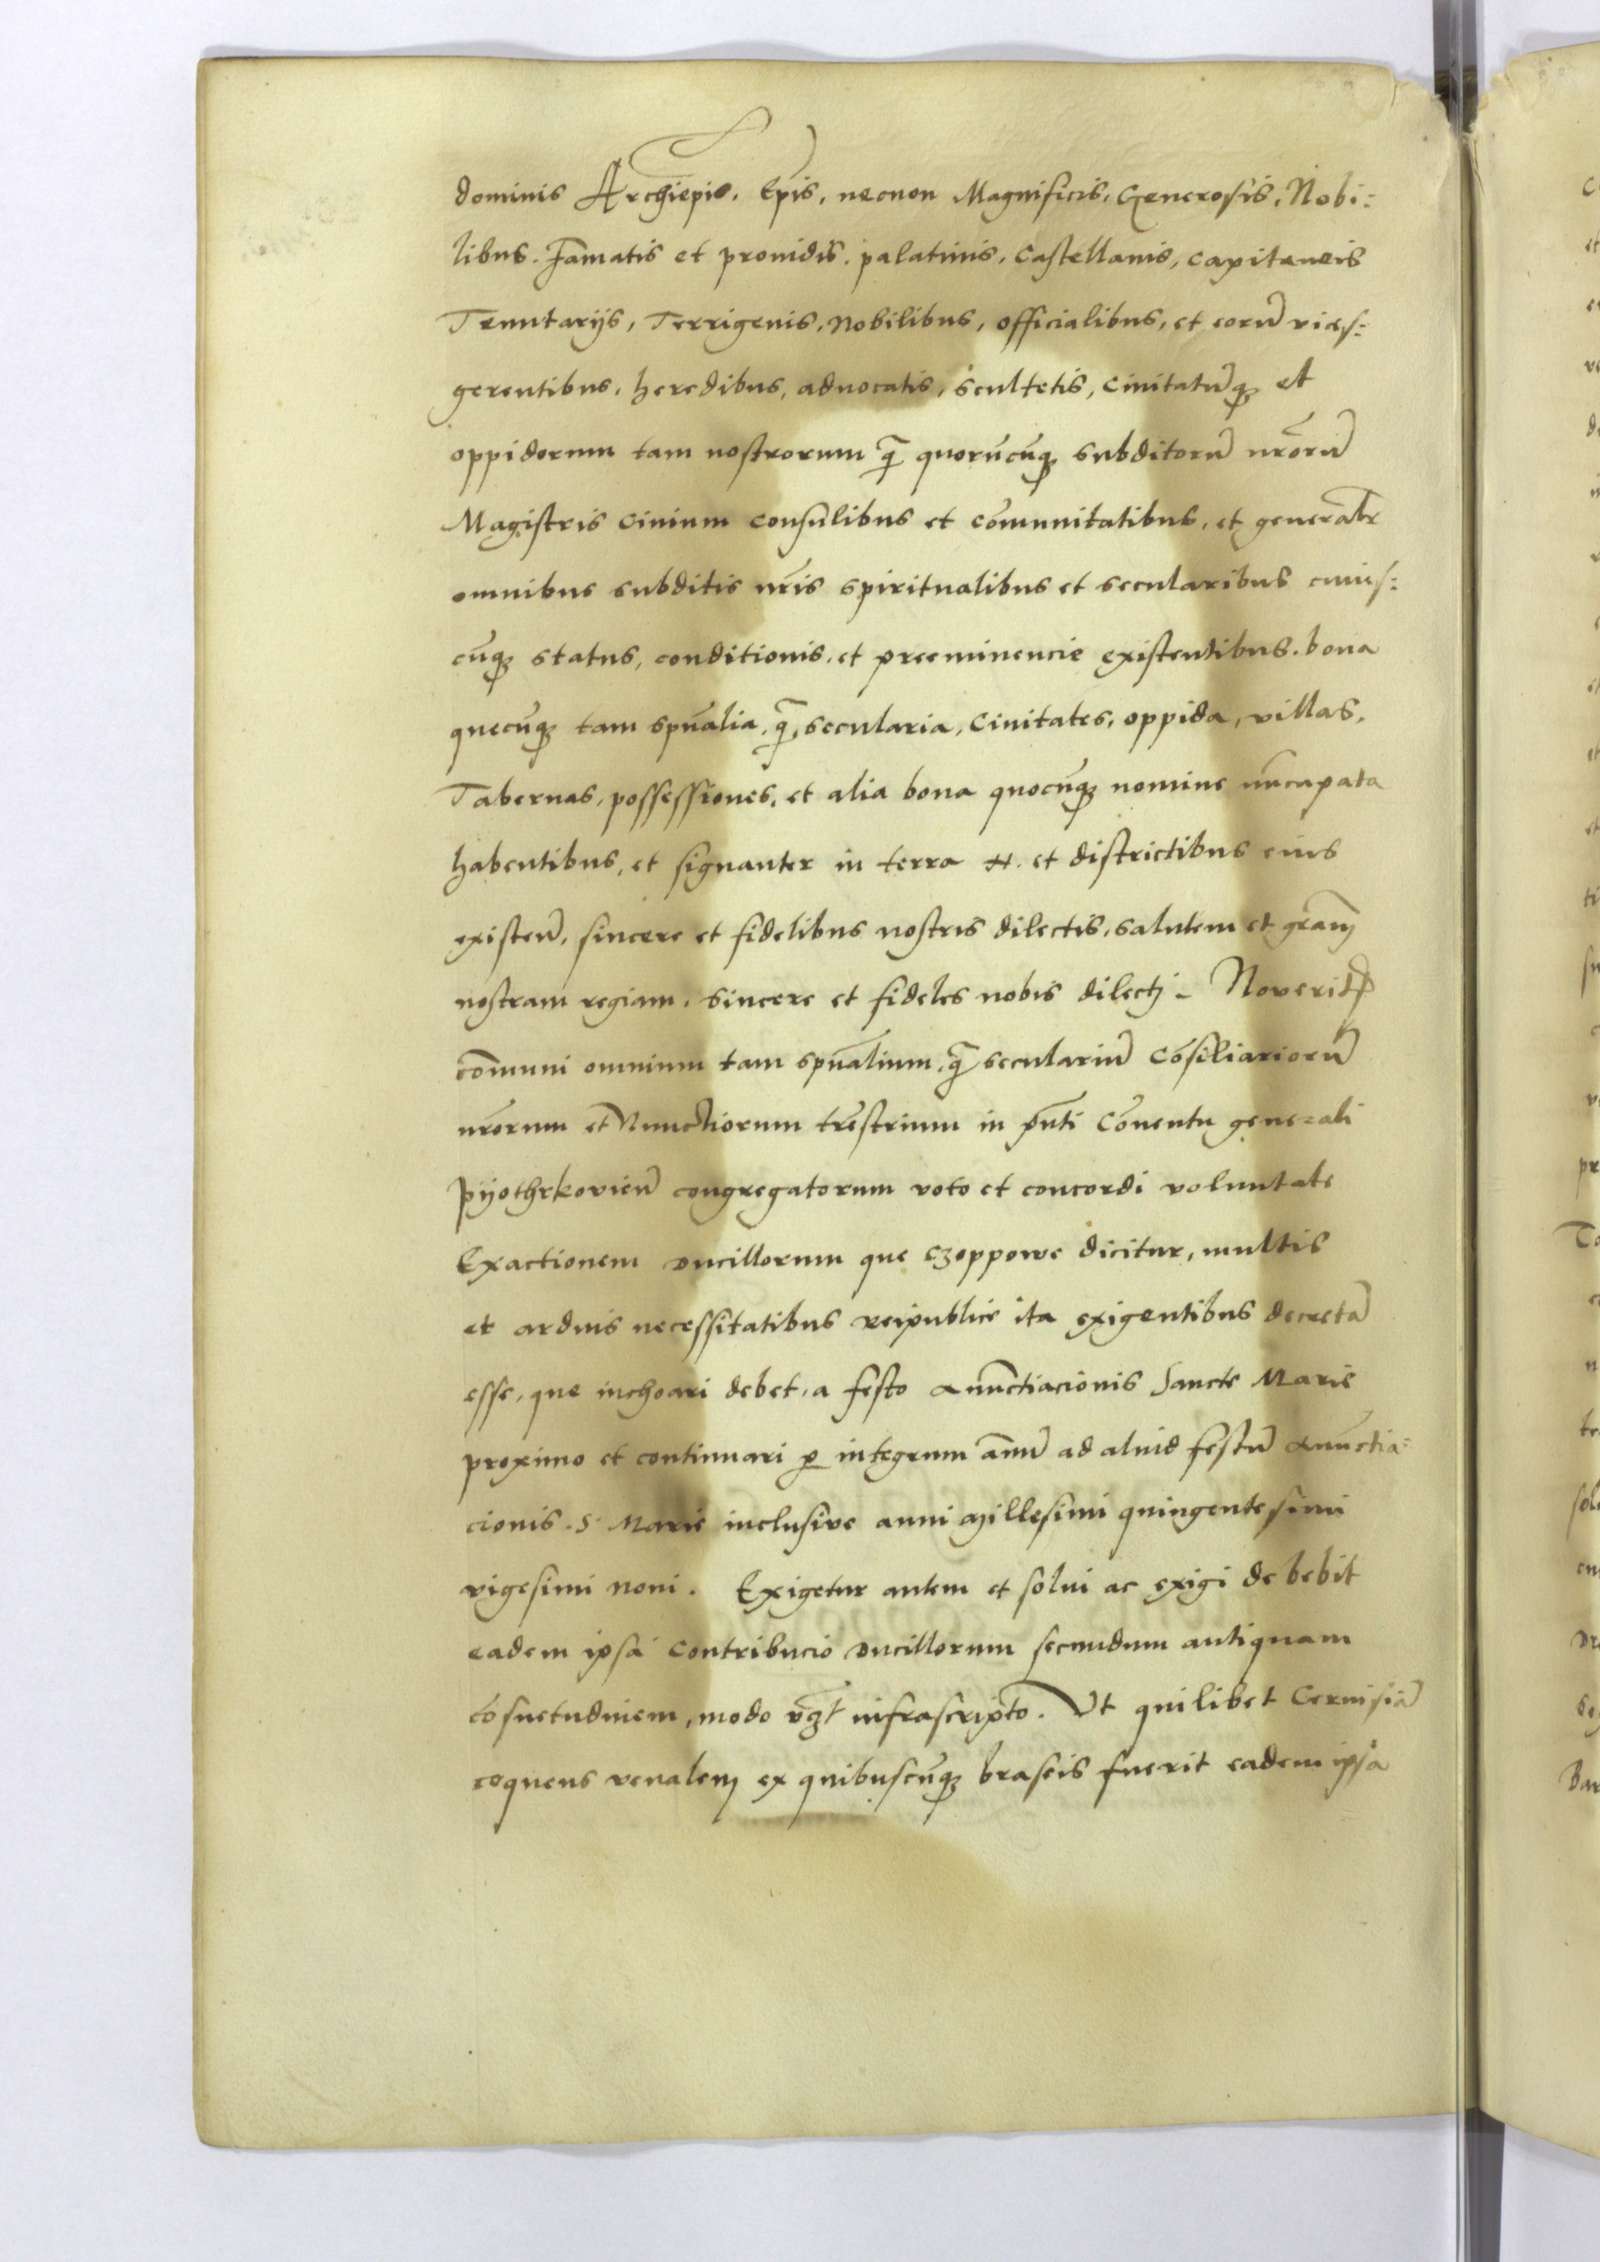 dominis Archiepis, Ep̃is, necnon Magnificis, Generosis, Nobi:
libus. Famatis et prouidis. palatinis, Castellanis, capitaneis
Tenutarijs, Terrigenis, Nobilibus, officialibus, et eorũ vices:
gerentibus, heredibus, aduocatis, scultetis, Ciuitatũq; et
oppidorum tam nostrorum q̃ quorũcũq; subditorũ nr̃orũ
Magistris Ciuium consulibus et cõmunitatibus, et generalr̃
omnibus subditis nr̃is spiritualibus et secularibus cuius:
cũq; status, conditionis, et preeminencie existentibus. bona
quecũq; tam spũalia, q̃, secularia, Ciuitates, oppida, villas,
Tabernas, possessiones, et alia bona quocũq; nomine nũcupata
habentibus, et signanter in terra N. et districtibus eius
existeñ, sincere et fidelibus nostris dilectis, salutem et gr̃am
nostram regiam. Sincere et fideles nobis dilecti. Noveritis
cõmuni omnium tam spũalium, q̃ seculariũ Cõsiliariorũ
nr̃orum et Nunctiorum tr̃estrium in pñti Cõuentu generali
Pyothrkovieñ congregatorum voto et concordi voluntate
Exactionem ducillorum que czoppowe dicitur, multis
et arduis necessitatibus reipublice ita exigentibus decretã
esse, que inchoari debet, a festo Anũctiacionis Sancte Marie
proximo et continuari p integrum annũ ad aliud festũ Anũctia:
cionis. S. Marie inclusive anni millesimi quingentesimi
vigesimi noni. Exigetur autem et solui ac exigi debebit
eadem ipsa contribucio ducillorum secundum antiquam
cõsuetudinem, modo vz̃ infrascripto. Vt quilibet Ceruisiã
coquens venalem ex quibuscũq; braseis fuerit eadem ipsa